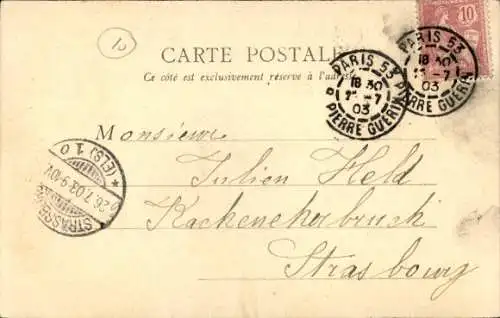 10
CARTE POSTALE
Ce côté est exclusivement réservé à l'adresse
PARIS 53
18 30
-7
03
PIERRE GUERIN
PARIS 53
18 30
-7
03
PIERRE GUERIN
Monsieur
Julien Held
STRASSB
26.7.03.9-10V.
*(ELS.) 1 o
Strasbourg